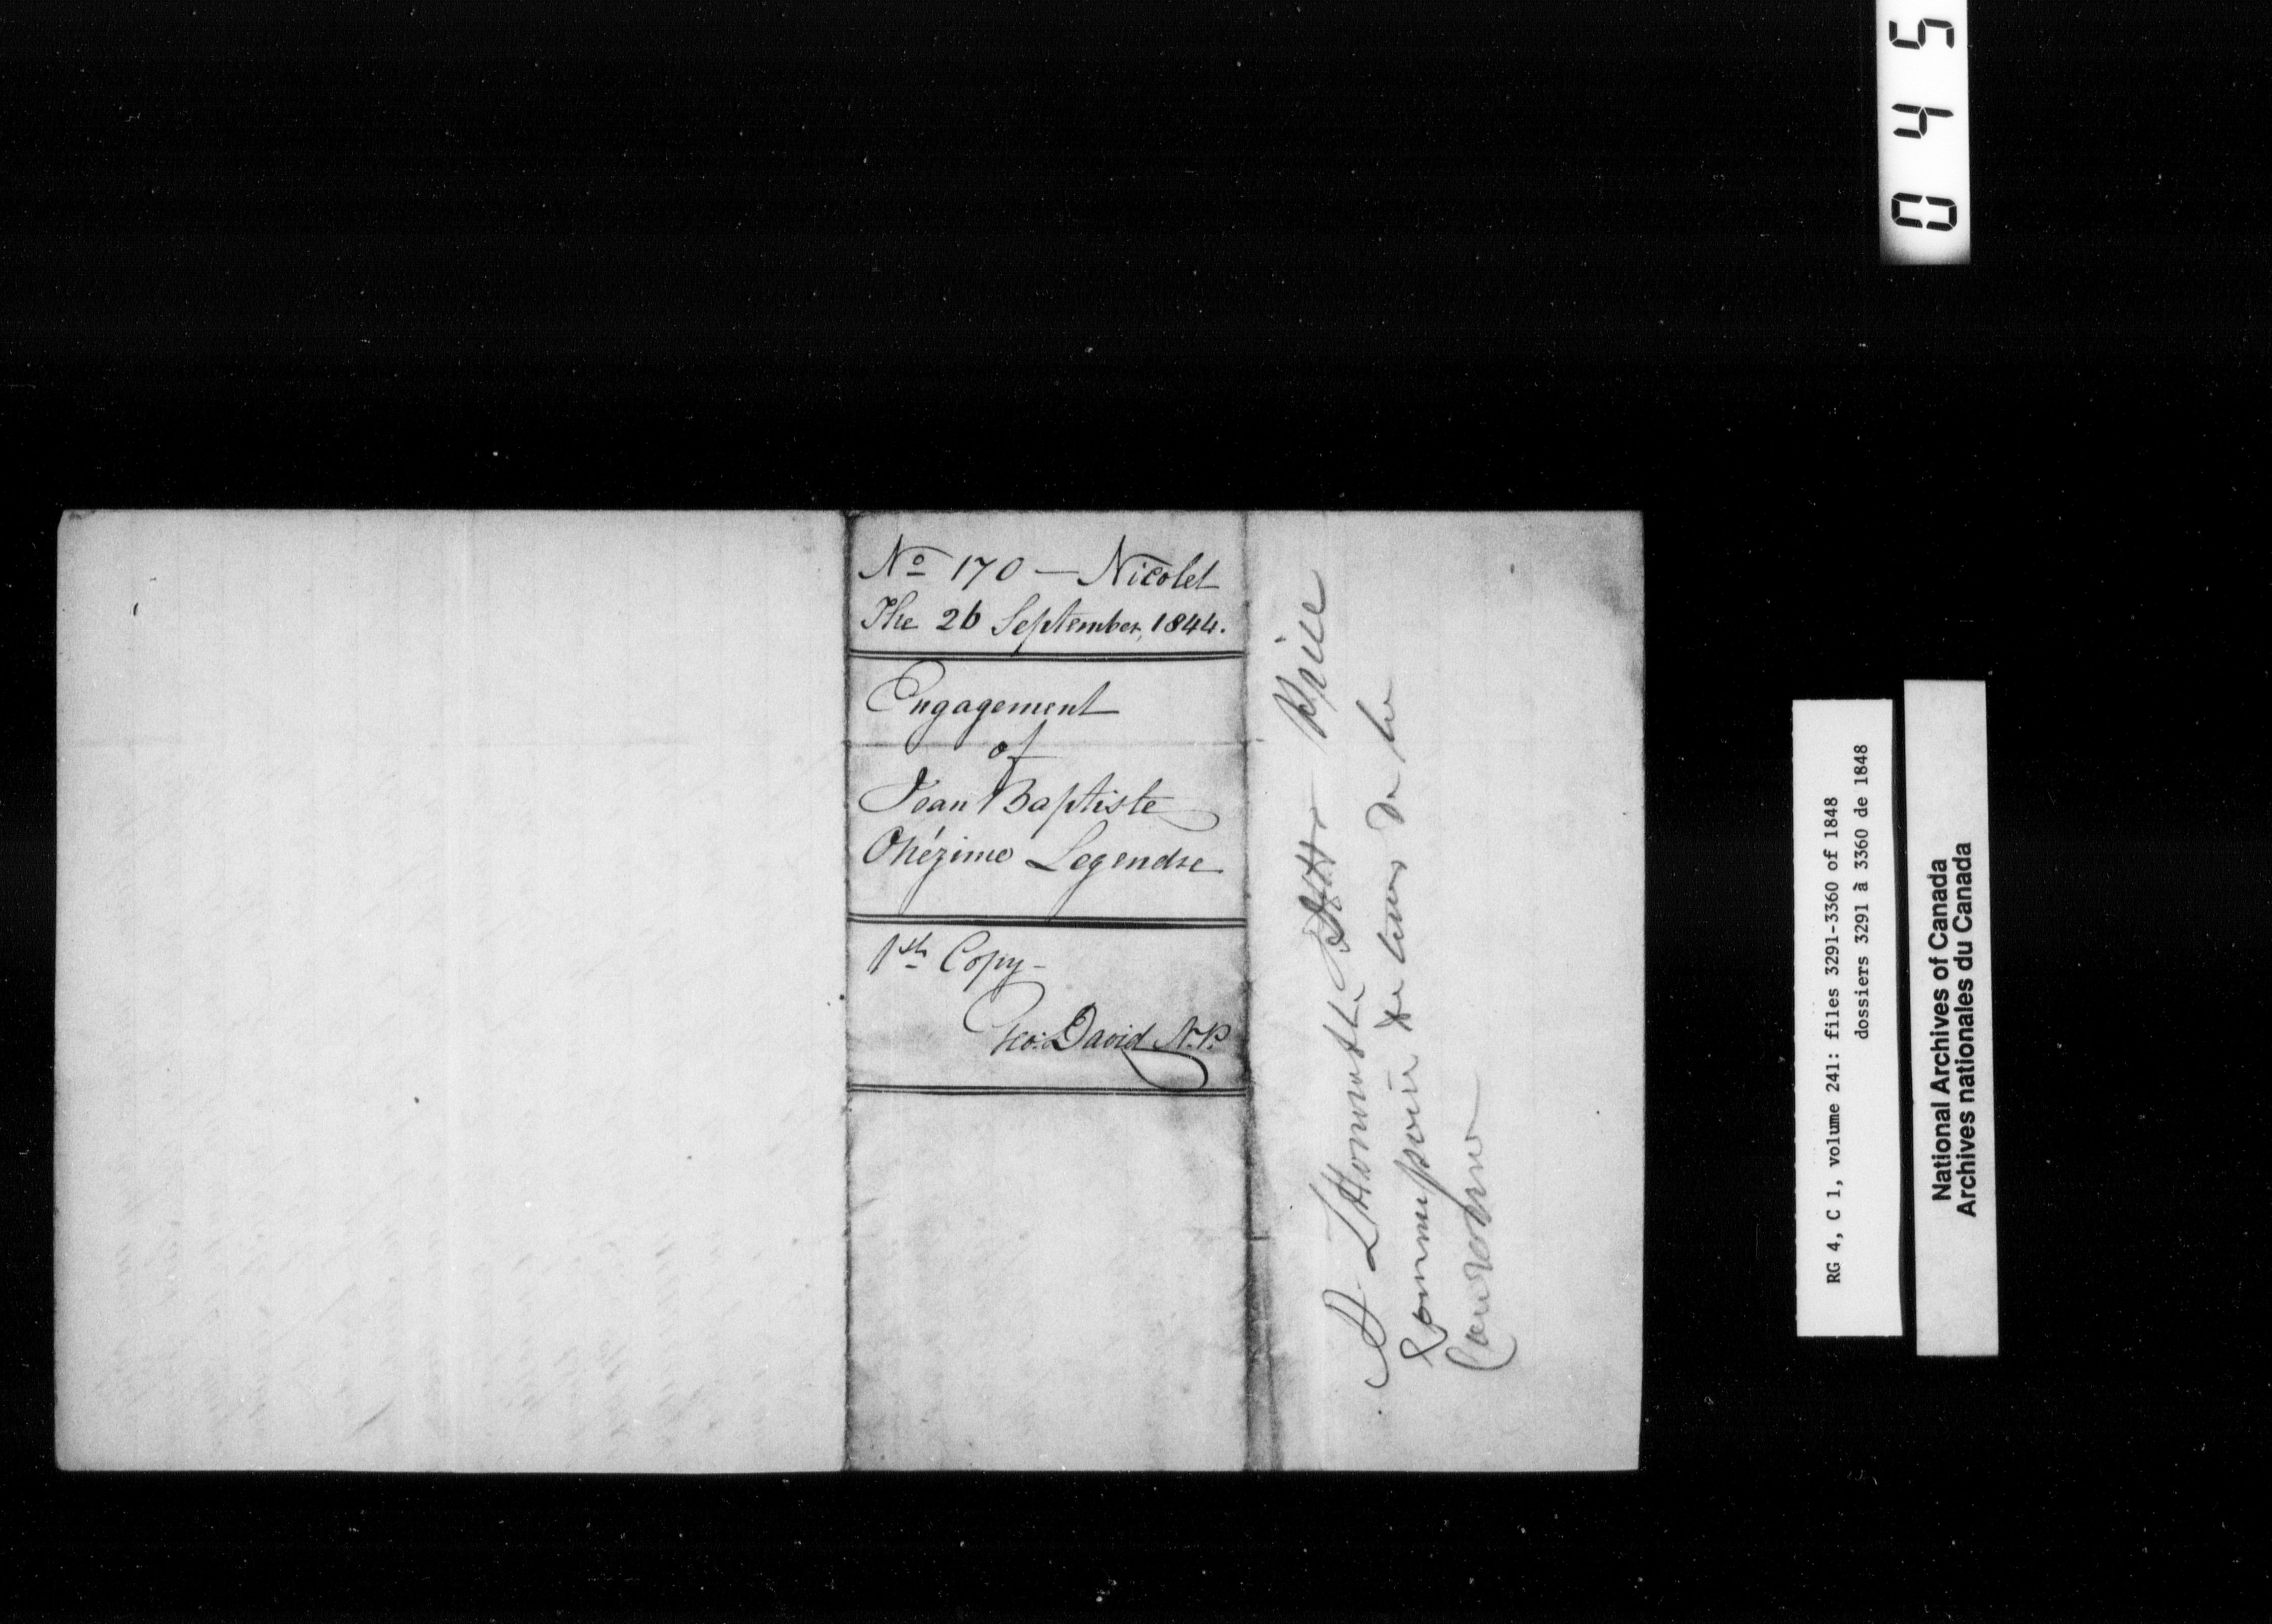 No 170 — Nicolet
The 26 September, 1844.
Engagement
of
Jean Baptiste
Onézime Legendre
1st Copy -
Geo: David N.P.
A L'Honorable Price
Commissaire des terres de la
Couronne
045
RG 4, C 1, volume 241: files 3291-3360 of 1848
dossiers 3291 à 3360 de 1848
National Archives of Canada
Archives nationales du Canada